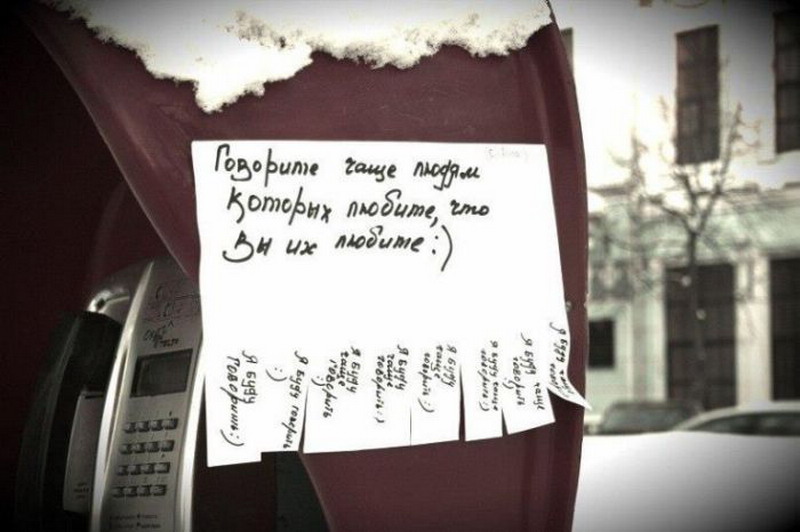 Говорите чаще людям
которых любите, что
Вы их любите :)
Я буду
говорить :)
Я буду говорить
:)
Я буду
чаще
говорить
:)
Я буду
чаще
говорить :)
Я буду
чаще
говорить :)
Я буду чаще
говорить :)
Я буду чаще
говорить
Я буду